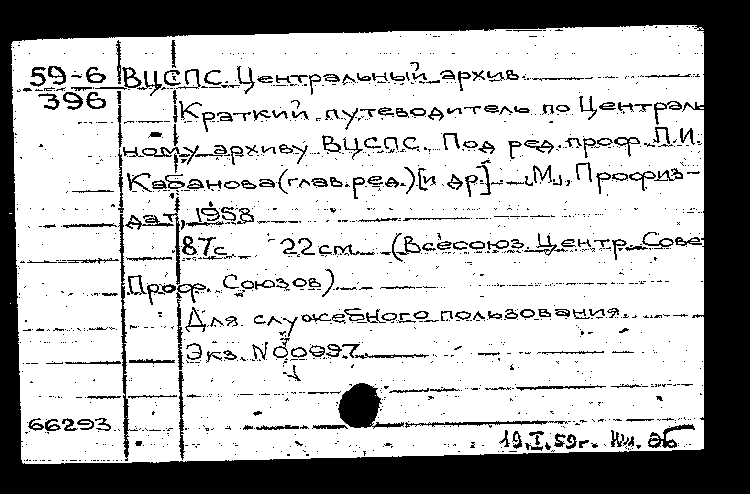 59-6 ВЦСПС. Центральный архив.
396
Краткий путеводитель по Централь
ному архиву ВЦСПС. Под ред. проф. П.И.
Кабанова (глав. ред.) [и др.] М., Профиз-
дат, 1958
87с 22см. (Всесоюз. Центр. Сове
Проф. Союзов)
Для служебного пользования.
Экз. N00097.
66293
19.I.59г.